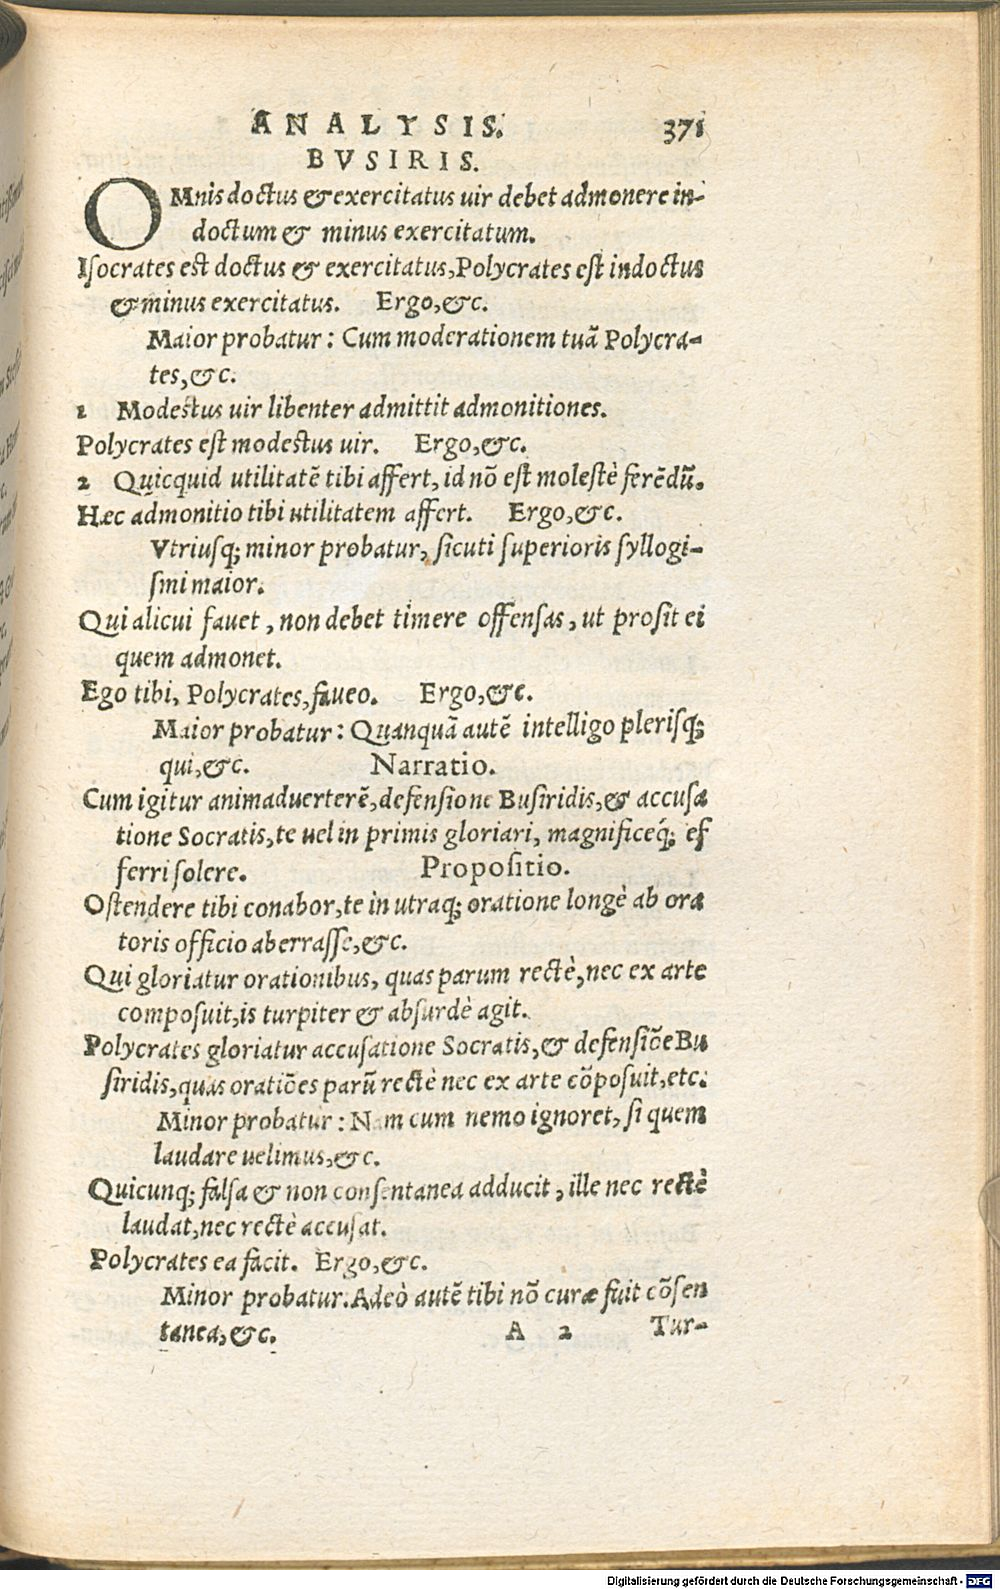 ANALYSIS. 371
BVSIRIS.
OMnis doctus & exercitatus uir debet admonere in-
doctum & minus exercitatum.
Isocrates est doctus & exercitatus, Polycrates est indoctus
& minus exercitatus. Ergo, &c.
Maior probatur: Cum moderationem tuã Polycra-
tes, &c.
1 Modestus uir libenter admittit admonitiones.
Polycrates est modestus uir. Ergo, &c.
2 Quicquid utilitatẽ tibi affert, id nõ est molestè ferẽdũ.
Hæc admonitio tibi utilitatem affert. Ergo, &c.
Vtriusq; minor probatur, sicuti superioris syllogi-
smi maior.
Qui alicui fauet, non debet timere offensas, ut prosit ei
quem admonet.
Ego tibi, Polycrates, faueo. Ergo, &c.
Maior probatur: Quanquã autẽ intelligo plerisq;
qui, &c. Narratio.
Cum igitur animaduerterẽ, defensione Busiridis, & accusa
tione Socratis, te uel in primis gloriari, magnificeq́; ef
ferri solere. Propositio.
Ostendere tibi conabor, te in utraq; oratione longè ab ora
toris officio aberrasse, &c.
Qui gloriatur orationibus, quas parum rectè, nec ex arte
composuit, is turpiter & absurdè agit.
Polycrates gloriatur accusatione Socratis, & defensiõe Bu
siridis, quas oratiões parũ rectè nec ex arte cõposuit, etc.
Minor probatur: Nam cum nemo ignoret, si quem
laudare uelimus, &c.
Quicunq; falsa & non consentanea adducit, ille nec rectè
laudat, nec rectè accusat.
Polycrates ea facit. Ergo, &c.
Minor probatur. Adeò autẽ tibi nõ curæ fuit cõsen
tanea, &c. A 2 Tur-
Digitalisierung gefördert durch die Deutsche Forschungsgemeinschaft - DFG